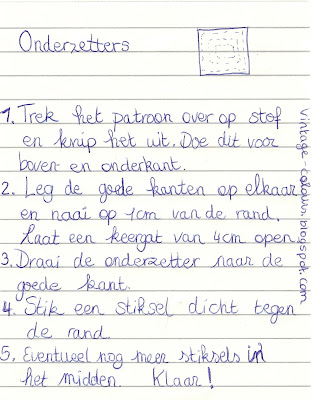 Onderzetters
1. Trek het patroon over op stof
en knip het uit. Doe dit voor
boven- en onderkant.
2. Leg de goede kanten op elkaar
en naai op 1cm van de rand.
Laat een keergat van 4cm open.
3. Draai de onderzetter naar de
goede kant.
4. Stik een stiksel dicht tegen
de rand.
5. Eventueel nog meer stiksels in
het midden. Klaar!
vintage-colours.blogspot.com